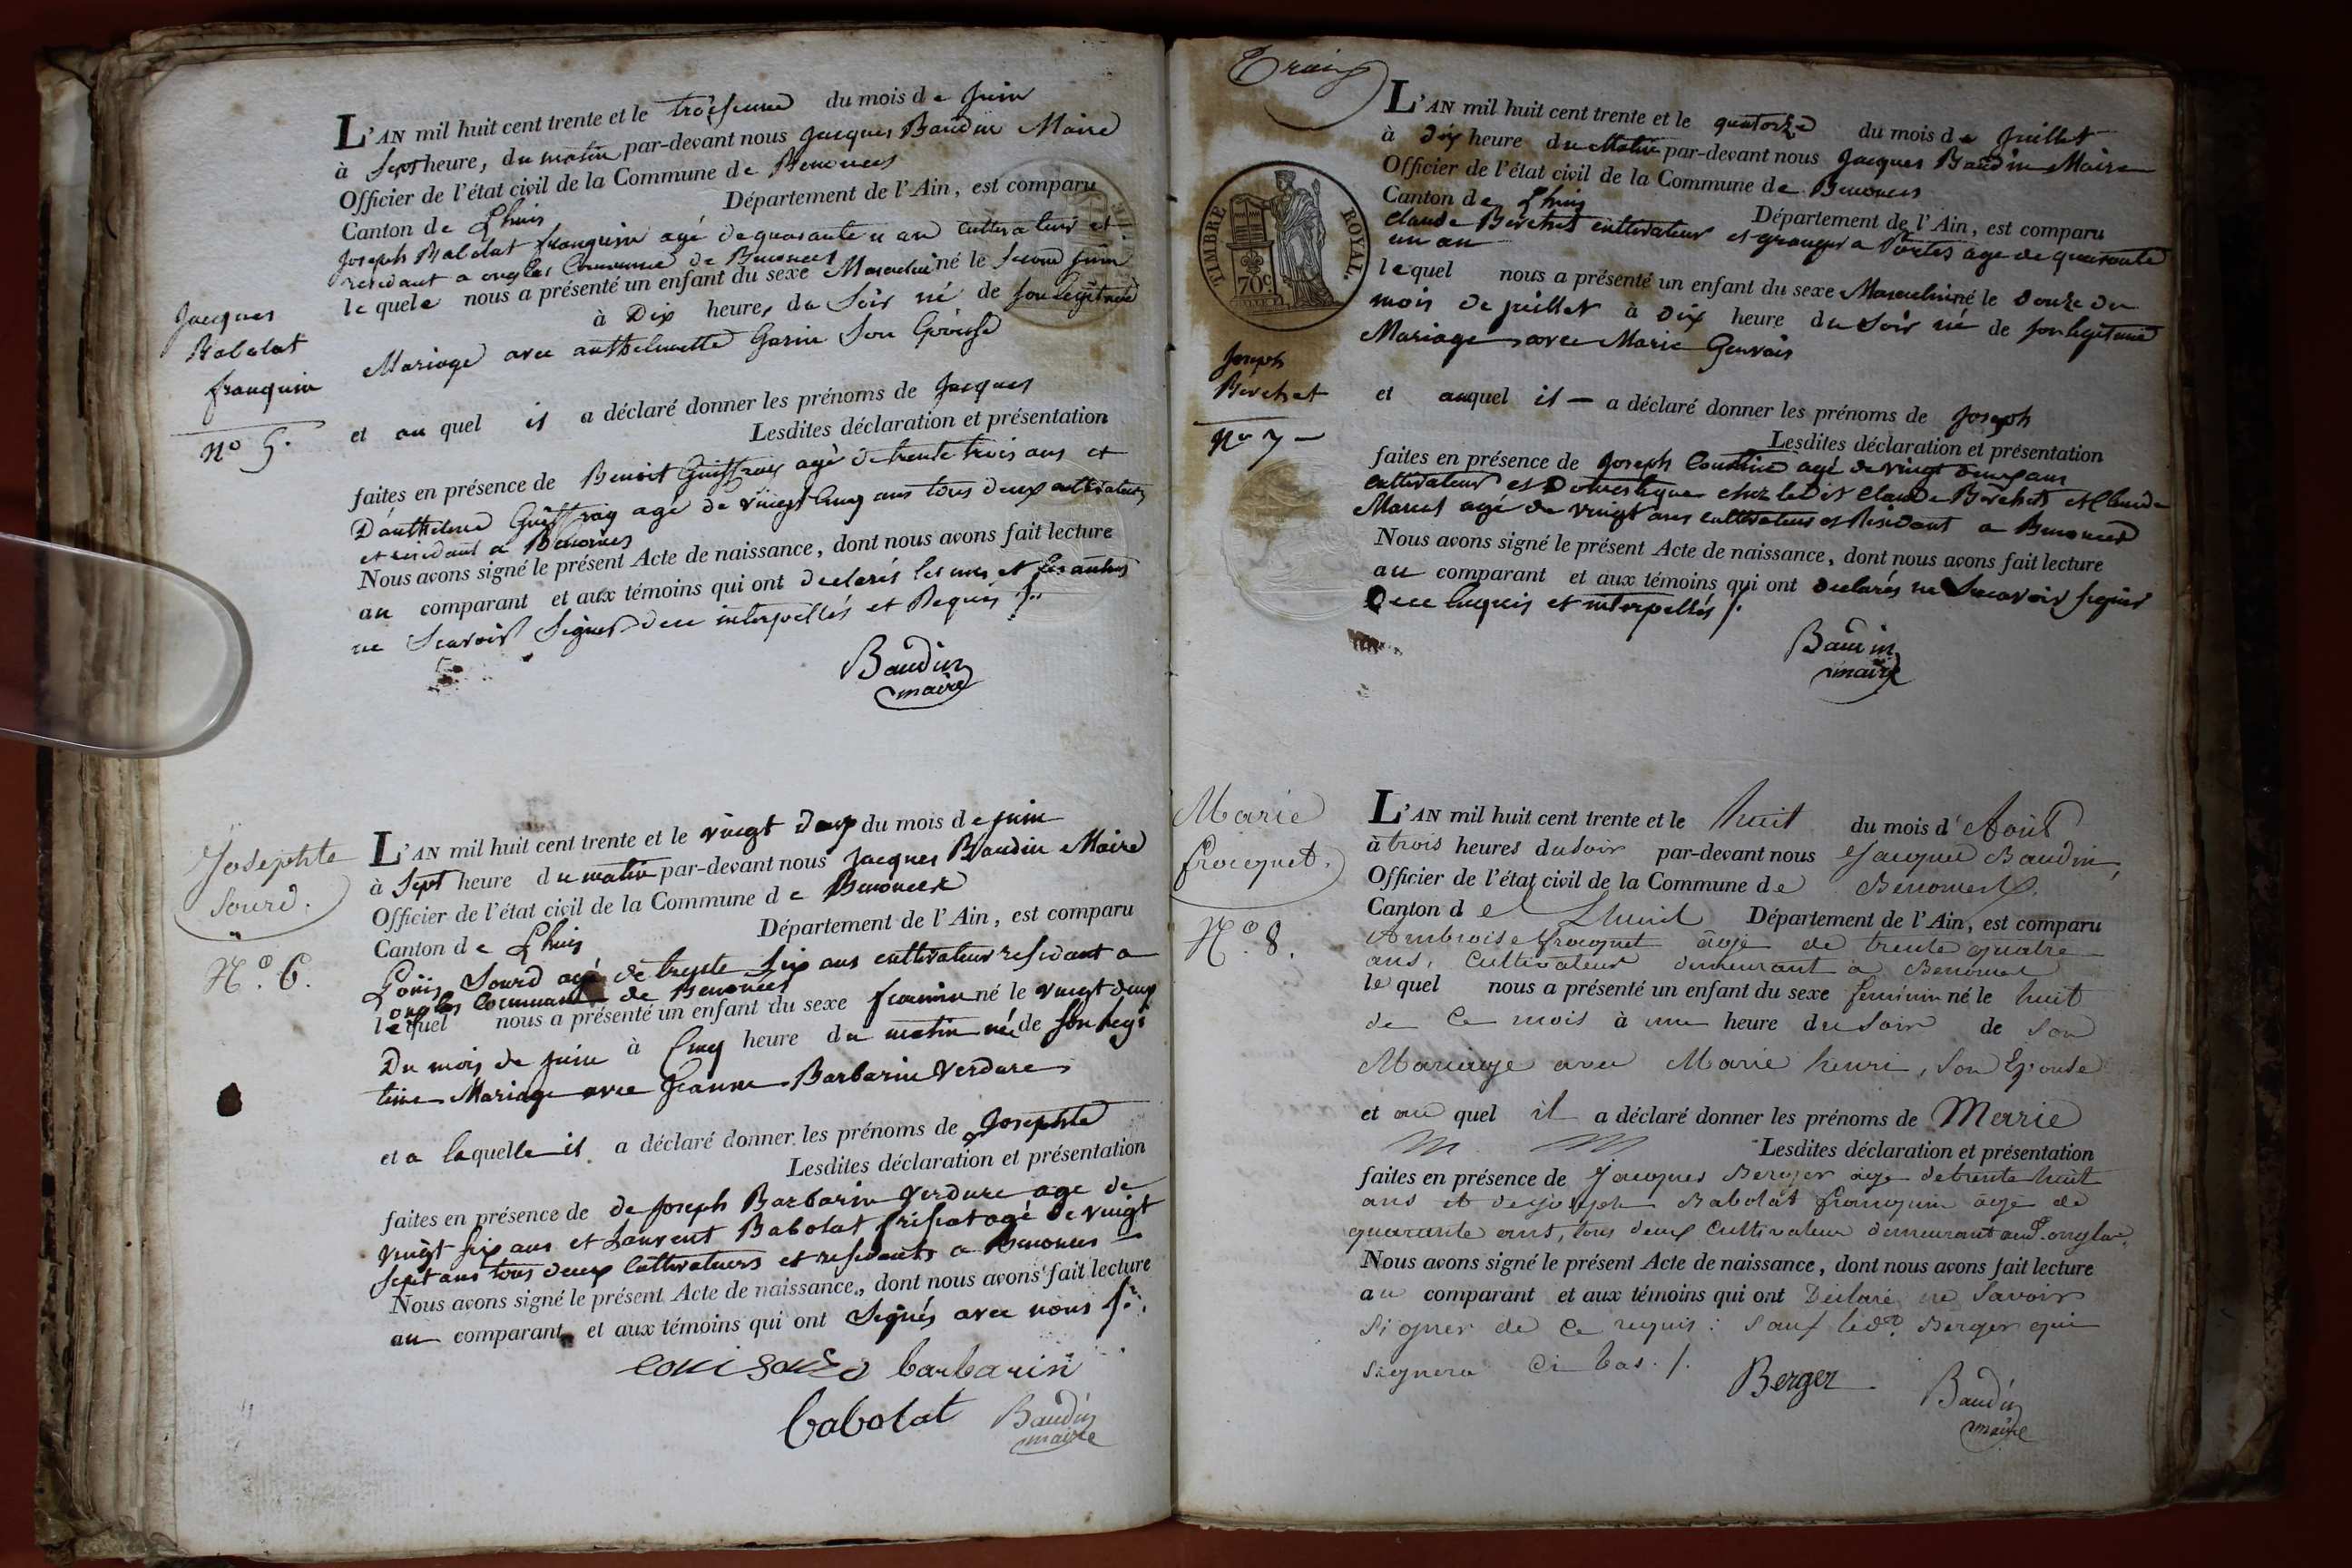 L'AN mil huit cent trente et le troisieme du mois de Juin
à Sept heure, du matin par-devant nous Jacques Baudin Maire
Officier de l'état civil de la Commune de Benonces
Canton de Lhuis Département de l'Ain, est comparu
Joseph Babolat franquin agé de quarante u an cultivateur et
residant a onglas Commune de Benonces
le quele nous a présenté un enfant du sexe Masculin né le second Juin
à Dix heures du Soir né de son legitime
Mariage avec anthelmette Garin Son Epouse
et au quel il a déclaré donner les prénoms de Jacques
Lesdites déclaration et présentation
faites en présence de Benoit Guiffray agé de trente trois ans et
D'anthelme Guiffray agé de vingt cinq ans tous deux cultivateurs
et residant a Benonces
Nous avons signé le présent Acte de naissance, dont nous avons fait lecture
au comparant et aux témoins qui ont declarés les uns et les autres
ne Scavoir Signer de ce interpellés et Requis /.
Baudin
maire
Jacques
Babolat
franquin
No 5.
Josephte
Sourd.
N.o 6.
L'AN mil huit cent trente et le vingt deux du mois de juin
à Sept heure du matin par-devant nous Jacques Baudin Maire
Officier de l'état civil de la Commune de Benonces
Canton de Lhuis Département de l'Ain, est comparu
Louis Sourd agé de trente Six ans cultivateur residant a
onglas Commune de Benonces
lequel nous a présenté un enfant du sexe feminin né le vingt deux
Du mois de juin à Cinq heure du matin née de son legi
time Mariage avec Jeanne Barbarin Verdure
et a laquelle il a déclaré donner les prénoms de Josephte
Lesdites déclaration et présentation
faites en présence de de Joseph Barbarin Verdure age de
vingt Six ans et Laurent Babolat frisat agé de vingt
Sept ans tous deux Cultivateurs et residants a Benonces
Nous avons signé le présent Acte de naissance, dont nous avons fait lecture
au comparant et aux témoins qui ont Signés avec nous /.
Barbarin
babolat Baudin
maire
TIMBRE ROYAL.
70c
Joseph
Berchet
No 7
L'AN mil huit cent trente et le quatorze du mois de Juillet
à dix heure du Matin par-devant nous Jacques Baudin Maire
Officier de l'état civil de la Commune de Benonces
Canton de Lhuis Département de l'Ain, est comparu
Claude Berchet cultivateur et granger a Portes age de quarante
un an
lequel nous a présenté un enfant du sexe Masculin né le Douze du
mois de juillet à Dix heure du Soir né de son legitime
Mariage avec Marie Gervais
et auquel il — a déclaré donner les prénoms de Joseph
Lesdites déclaration et présentation
faites en présence de Joseph agé de vingt deux ans
cultivateur et Domestique chez le Dit Claude Berchet et Claude
Marcel agé de vingt ans cultivateur et Residant a Benonces
Nous avons signé le présent Acte de naissance, dont nous avons fait lecture
au comparant et aux témoins qui ont declarés ne Scavoir signer
De ce Requis et interpellés /.
Baudin
maire
Marie
frocquet.
N.o 8.
L'AN mil huit cent trente et le huit du mois d'Août
à trois heures du soir par-devant nous Jacques Baudin,
Officier de l'état civil de la Commune de Benonces
Canton de Lhuis Département de l'Ain, est comparu
Ambroise frocquet âgé de trente quatre
ans, Cultivateur demeurant à Benonces
le quel nous a présenté un enfant du sexe feminin né le huit
de Ce mois à une heure du soir de son
Mariage avec Marie henri, son Epouse
et au quel il a déclaré donner les prénoms de Marie
Lesdites déclaration et présentation
faites en présence de Jacques Berger âgé de trente huit
ans et de Joseph Babolat franquin âgé de
quarante ans, tous deux Cultivateur demeurant aud. onglas,
Nous avons signé le présent Acte de naissance, dont nous avons fait lecture
au comparant et aux témoins qui ont Déclaré ne Savoir
Signer de Ce requis : sauf led. Berger qui
signera Ci bas. /.
Berger Baudin
maire